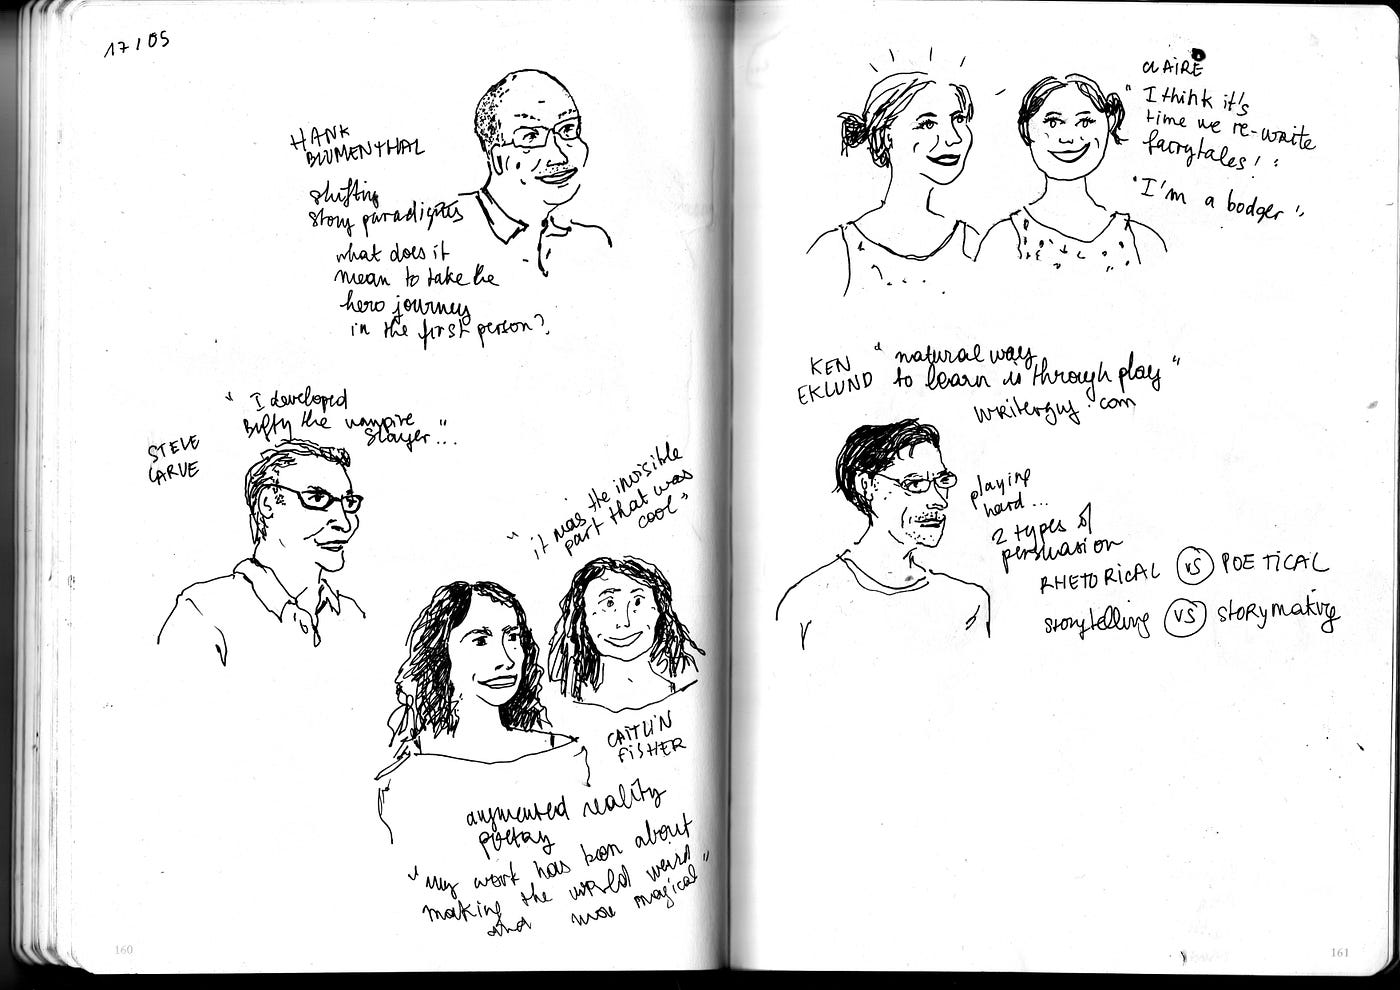 17/05
HANK
BLUMENTHAL
shifting
story paradigms
what does it
mean to take the
hero journey
in the first person?
" I developed
Buffy the vampire
Slayer"...
STEVE
LARUE
"it was the invisible
part that was
cool"
CAITLIN
FISHER
augmented reality
poetry
"my work has been about
making the world weird
and more magical"
160
CLAIRE
"I think it's
time we re-write
fairytales!"
"I'm a bodger"
KEN
EKLUND
" natural way
to learn is through play "
writerguy.com
playing
hard...
2 types of
persuasion
RHETORICAL VS POETICAL
storytelling VS storymaking
161